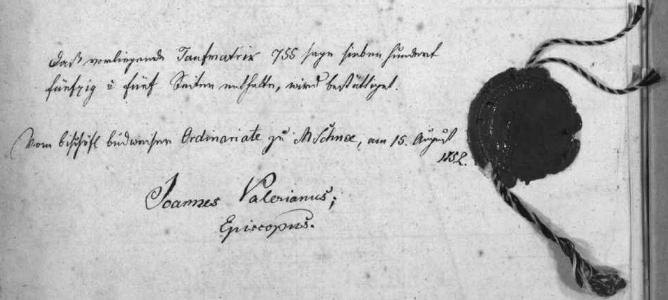 Daß vorliegende Taufmatrik 755 sage sieben hundert
fünfzig & fünf Seiten enthalte, wird bestättiget.
Vom bischöfl budweiser Ordinariate zu am 15. August
1852.
Joannes Valerianus;
Episcopus.